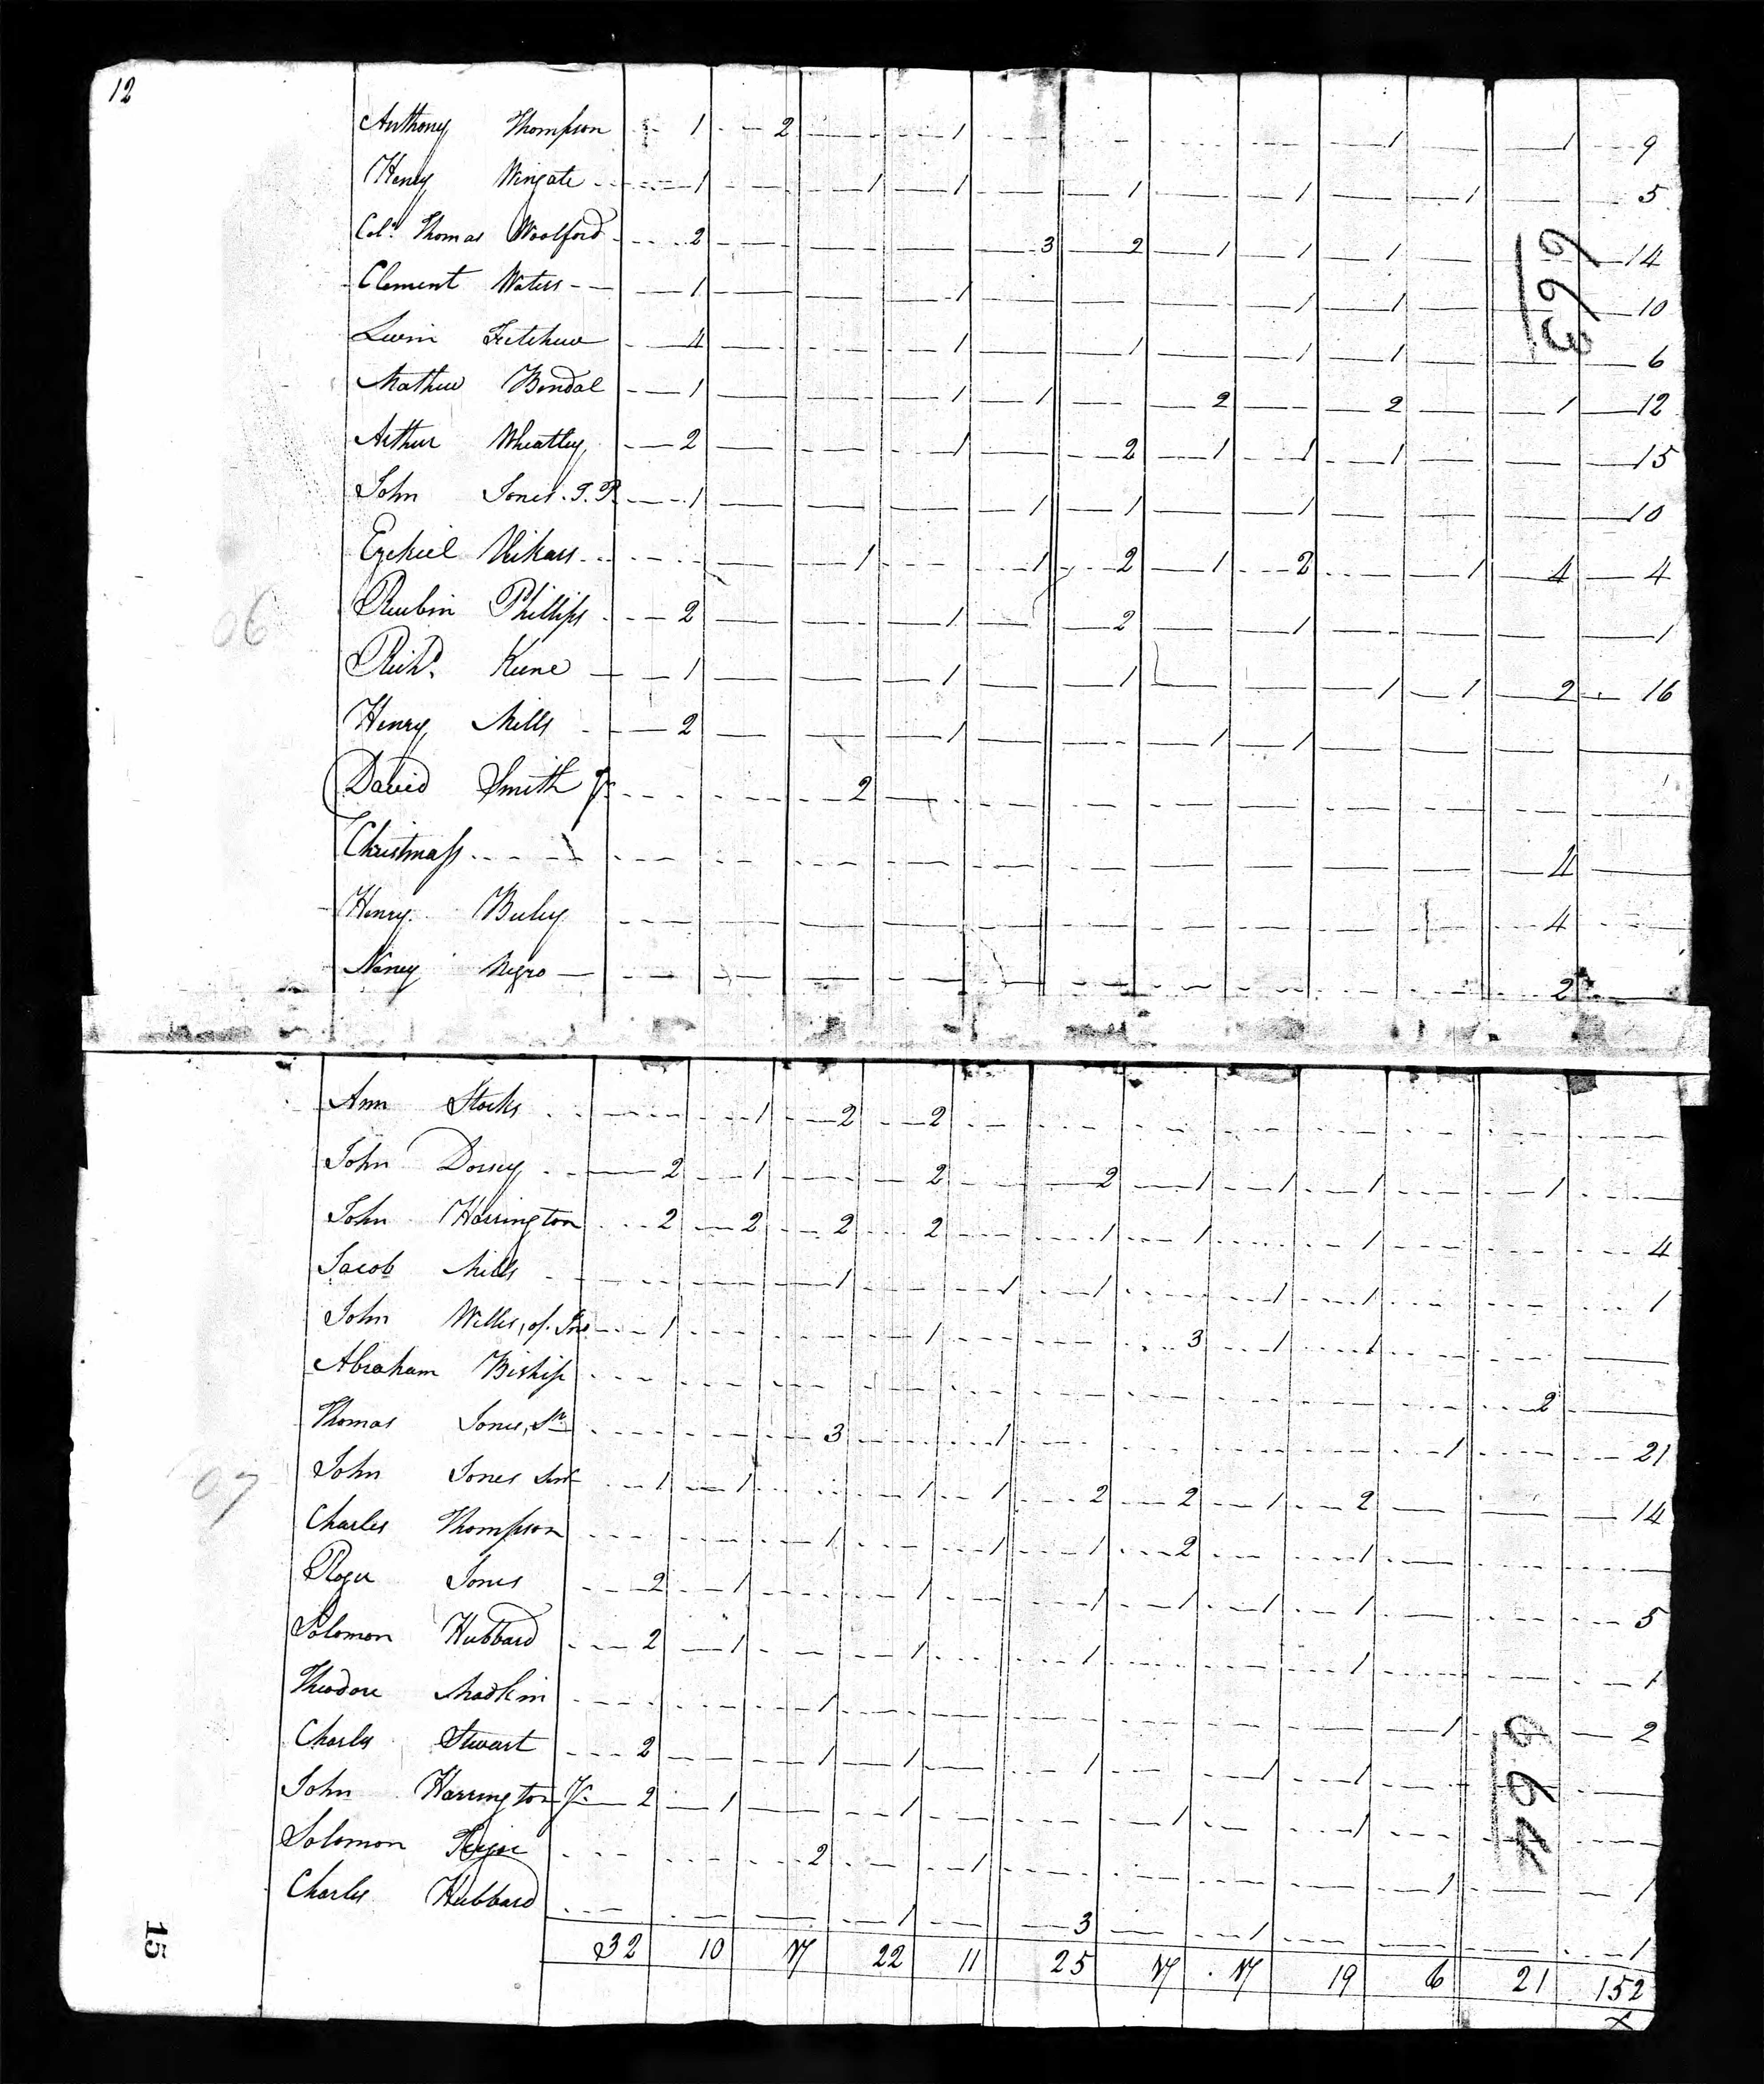 12
Anthony Thompson 1 2 1 1 1 9
Henry Wingate 1 1 1 1 1 1 5
Col. Thomas Woolford 2 3 2 1 1 1 14
Clement Waters 1 1 1 1 10
Levin 4 1 1 1 1 6
Mathew 1 1 1 2 2 1 12
Arthur Wheatley 2 1 2 1 1 1 15
John Jones 1 1 1 1 10
Ezekiel Vickars 1 1 2 1 2 1 4 4
Reubin Phillips 2 1 2 1 1
Richd. Keene 1 1 1 1 1 2 16
Henry Mills 2 1 1 1
David Smith Jr 2
Christmass 4
Henry Buley 4
Nancy Negro 2
663
06
Ann Stocks 1 2 2
John Dorsey 2 1 2 2 1 1 1 1
John Harrington 2 2 2 2 1 1 1 4
Jacob Mills 1 1 1 1 1 1
John Willis, of Jno 1 1 3 1 1
Abraham Biship 2
Thomas Jones, Sr 3 1 1 21
John Jones 1 1 1 1 2 2 1 2 14
Charles Thompson 1 1 1 2 1
Roger Jones 2 1 1 1 1 1 1 5
Solomon Hubbard 2 1 1 1 1 1
Theodore Madkin 1 1 2
Charles Stewart 2 1 1 1 1 1
John Harrington Jr. 2 1 1 1 1
Solomon 2 1 1 1
Charles Hubbard 1 3 1 1
32 10 17 22 11 25 17 17 19 6 21 152
664
07
15